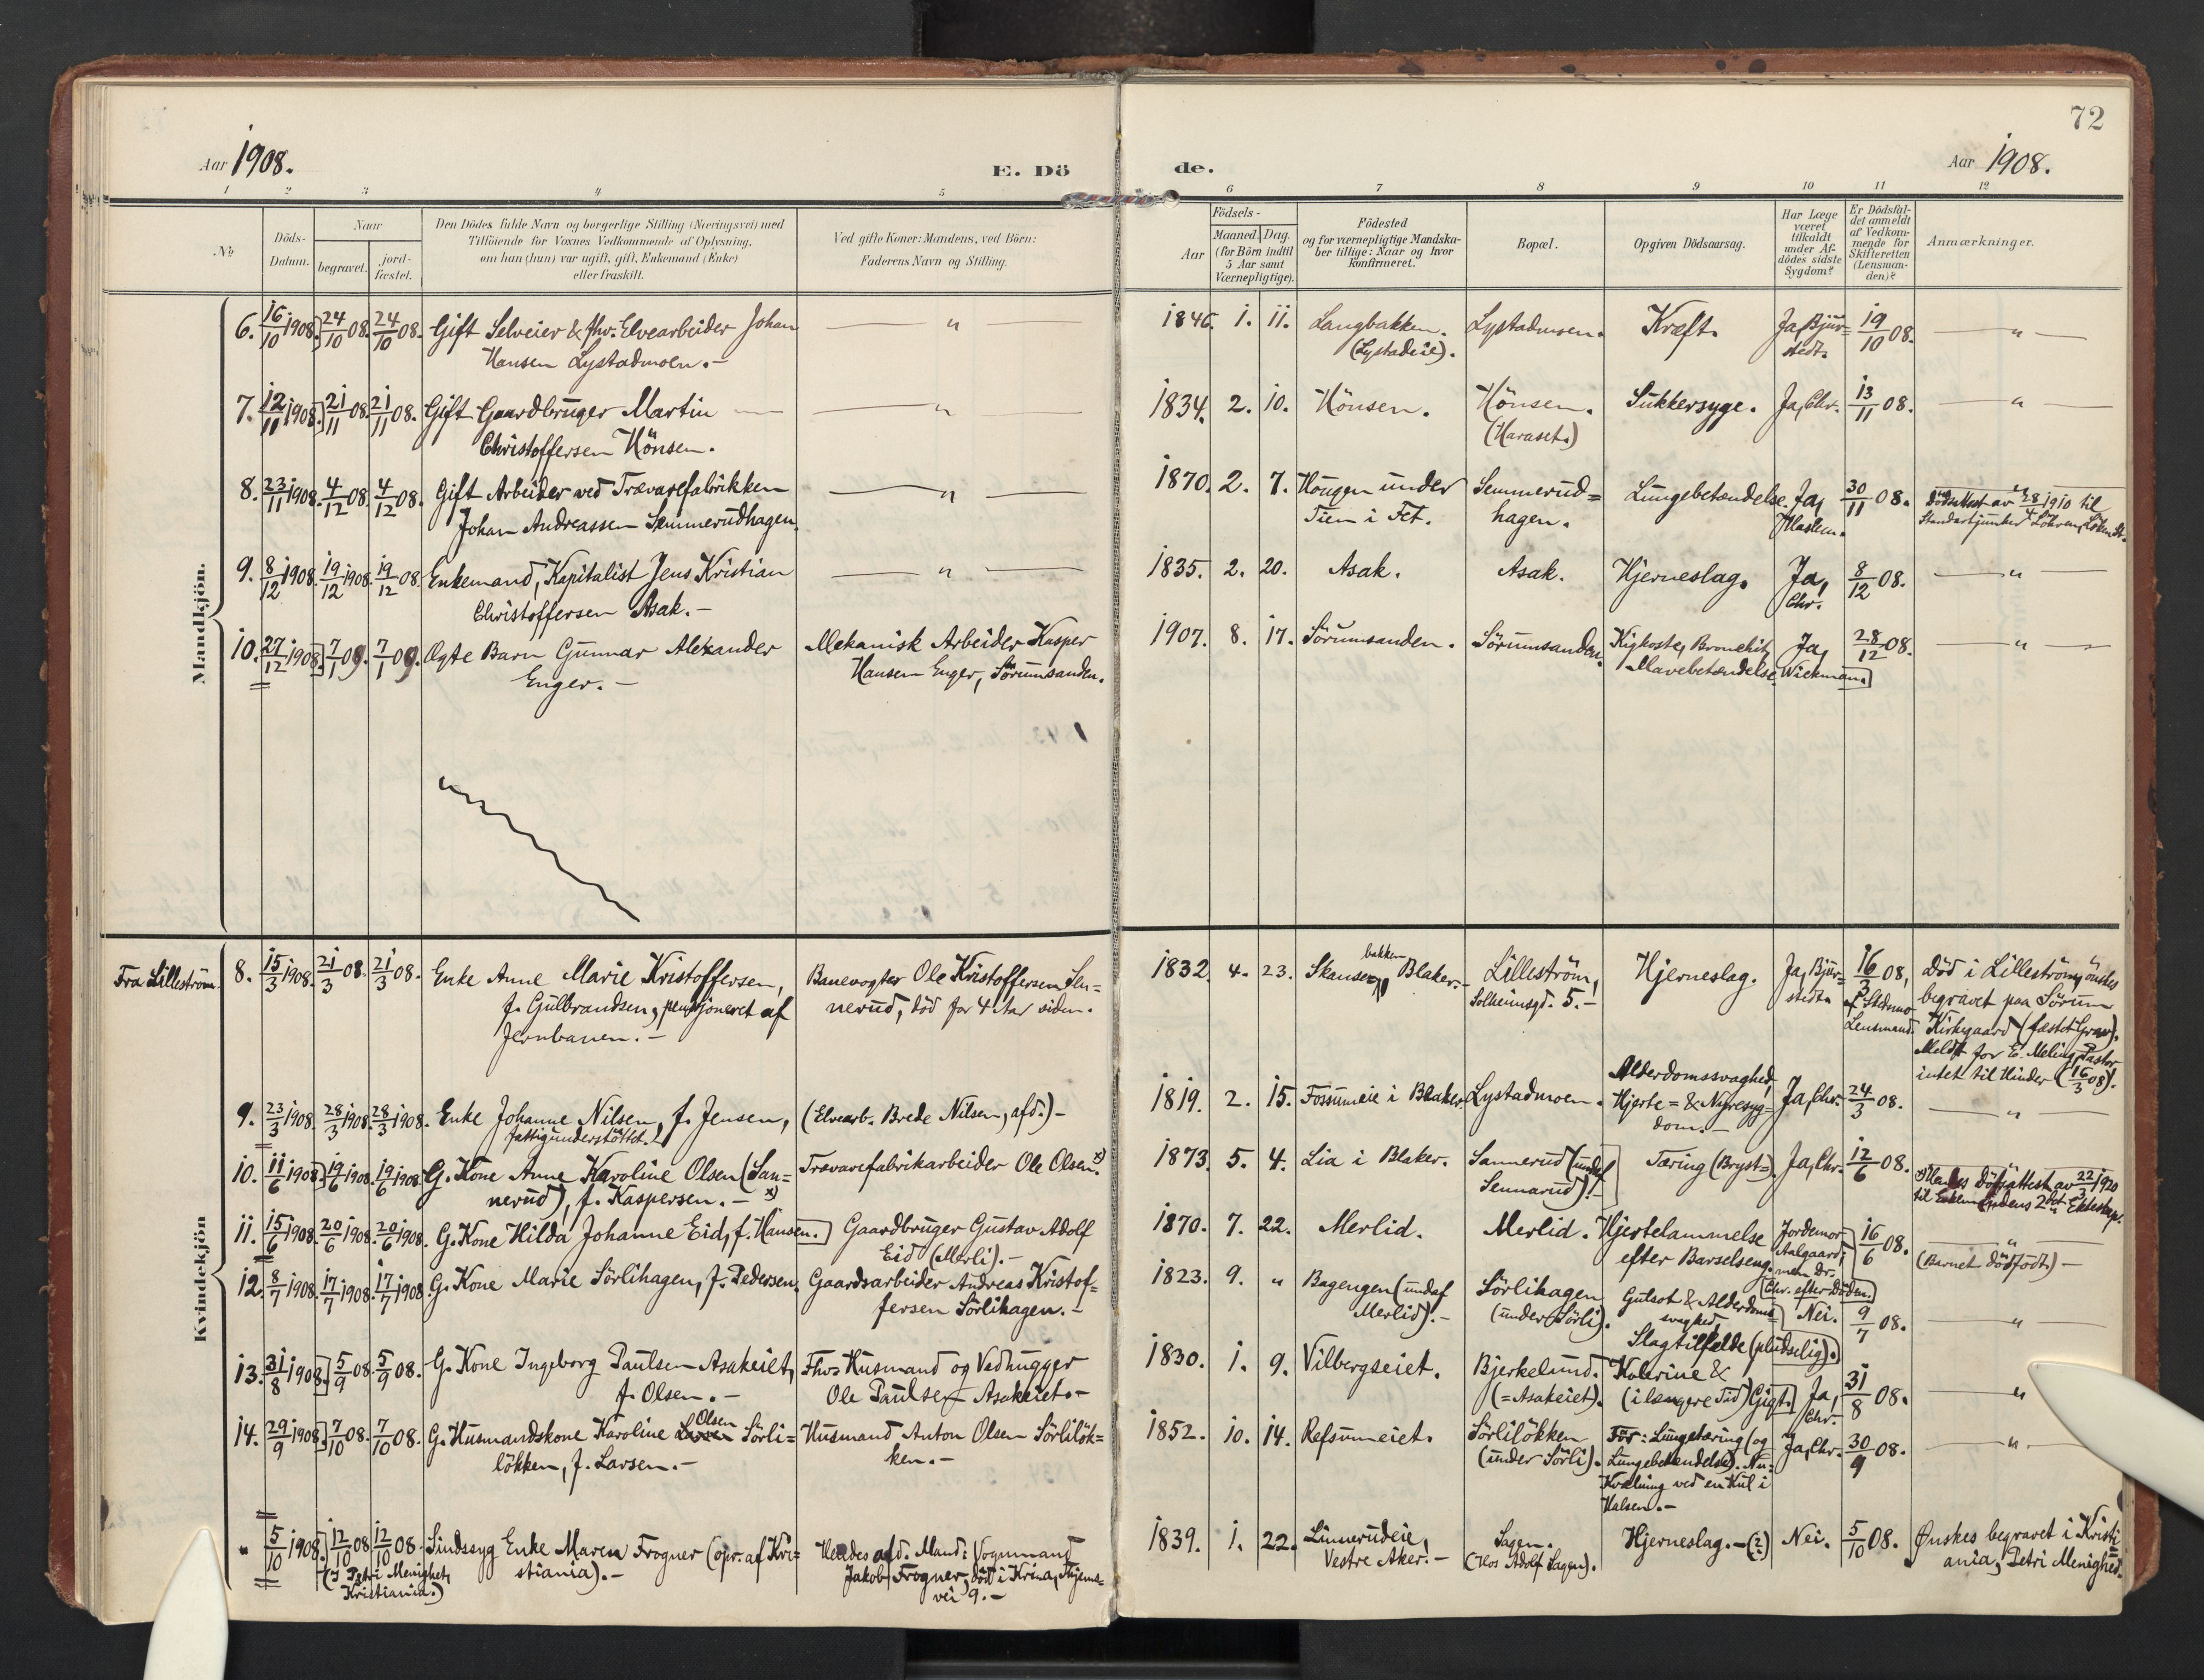 72
Aar 1908.
E. Dö
de.
Aar 1908.
1 2 3 4 5 6 7 8 9 10 11 12
No
Döds-
Datum.
Naar
begravet.
jord-
fæstet.
Den Dödes fulde Navn og borgerlige Stilling (Næringsvei) med
Tilföiende for Voxnes Vedkommende af Oplysning,
om han (hun) var ugift, gift, Enkemand (Enke)
eller fraskilt.
Ved gifte Koner: Mandens, ved Börn:
Faderens Navn og Stilling.
Födsels-
Aar
Maaned. Dag.
(for Börn indtil
5 Aar samt
Værnepligtige).
Födested
og for værnepligtige Mandska-
ber tillige: Naar og hvor
konfirmeret.
Bopæl.
Opgiven Dödsaarsag.
Har Læge
været
tilkaldt
under Af-
dödes sidste
Sygdom?
Er Dödsfal-
det anmeldt
af Vedkom-
mende for
Skifteretten
(Lensman-
den)?
Anmærkninger.
Mandkjön.
6. 16/10 1908. 24/10 08. 24/10 08. Gift Selveier & fhv. Elvearbeider Johan
Hansen Lystadmoen.-
— " —
1846. 1. 11. Langbakken.
(Lystadeie).
Lystadmoen. Kræft. Ja, Bjür=
stedt. 19/10 08. — " —
7. 12/11 1908. 21/11 08. 21/11 08. Gift Gaardbruger Martin
Christoffersen Hönsen.
— " —
1834. 2. 10. Hönsen. Hönsen.
(Haraset.)
Sukkersyge. Ja, Chr. 13/11 08. — " —
8. 23/11 1908. 4/12 08. 4/12 08. Gift Arbeider ved Trævarefabrikken
Johan Andreassen Semmerudhagen.
— " —
1870. 2. 7. Hougen under
Tien i Fet.
Semmerud=
hagen.
Lungebetændelse. Ja,
Haslem. 30/11 08. Dödsattest av 28/4 1910 til
9. 8/12 1908. 19/12 1908. 19/12 08. Enkemand, Kapitalist Jens Kristian
Christoffersen Asak.-
— " —
1835. 2. 20. Asak. Asak. Hjerneslag. Ja,
Chr. 8/12 08. — " —
10. 27/12 1908. 7/1 09. 7/1 09. Ægte Barn Gunnar Alexander
Enger.-
Mekanisk Arbeider Kasper
Hansen Enger, Sörumsanden.
1907. 8. 17. Sörumsanden. Sörumsanden. Kighoste, Bronchit,
Mavebetændelse. Ja,
Wickman. 28/12 08. — " —
Kvindekjön
Fra Lilleström. 8. 15/3 1908. 21/3 08. 21/3 08. Enke Anne Marie Kristoffersen,
f. Gulbrandsen, pensjoneret af
Jernbanen.-
Banevogter Ole Kristoffersen Sen=
nerud, död for 4 Aar siden.
1832. 4. 23. Skansebakken, Blaker. Lilleström,
Solheimsgd. 5.-
Hjerneslag. Ja, Bjür=
stedt. 16/3 08,
Lensmand.
Död i Lilleström, önskes
begravet paa Sörum
Kirkegaard (fæstet Grav).
Meldt for E. Meling, Pastor
intet til Hinder (16/3 08).
9. 23/3 1908. 28/3 1908. 28/3 1908. Enke Johanne Nilsen, f. Jensen,
fattigunderstöttet.
(Elvearb. Brede Nilsen, afd.)-
1819. 2. 15. Fossumeie i Blaker. Lystadmoen. Alderdomssvaghed,
Hjerte= & Nyresyg=
dom.-
Ja, Chr. 24/3 08. — " —
10. 11/6 1908. 19/6 1908. 19/6 1908. G. Kone Anne Karoline Olsen (San=
nerud), f. Kaspersen.- x)
Trævarefabrikarbeider Ole Olsen. x)
1873. 5. 4. Lia i Blaker. Sannerud (undaf
Sennerud).-
Tæring (Bryst=). Ja, Chr. 12/6 08. x) Hendes Dödsattest av 22/3 1920
til Enkemandens 2det Ekteskap.
11. 15/6 1908. 20/6 1908. 20/6 1908. G. Kone Hilda Johanne Eid, f. Hansen.
Gaardbruger Gustav Adolf
Eid (Merli).-
1870. 7. 22. Merlid. Merlid. Hjertelammelse
efter Barselseng.
Jordemor
Aalgaard,
men Dr.
Chr. efter Döden. 16/6 08. — " —
(Barnet dödfödt.)-
12. 8/7 1908. 17/7 1908. 17/7 1908. G. Kone Marie Sörlihagen, f. Pedersen.
Gaardsarbeider Andreas Kristof=
fersen Sörlihagen.-
1823. 9. " Bagengen (undaf
Merlid).-
Sörlihagen
(under Sörli).
Gulsot & Alderdoms=
svaghed.
Nei. 9/7 08. — " —
13. 31/8 1908. 5/9 08. 5/9 08. G. Kone Ingeborg Paulsen Asakeiet,
f. Olsen.-
Fhv. Husmand og Vedhugger
Ole Paulsen Asakeiet.-
1830. 1. 9. Vilbergseiet. Bjerkelund.
(=Asakeiet).
Slagtilfælde (pludselig).
Kolerine &
(i længere Tid) Gigt. Ja,
Chr. 31/8 08. — " —
14. 29/9 1908. 7/10 08. 7/10 08. G. Husmandskone Karoline Olsen Sörli=
lökken, f. Larsen.-
Husmand Anton Olsen Sörlilök=
ken.-
1852. 10. 14. Refsumeiet. Sörlilökken
(under Sörli).
För: Lungetæring (og
Lungebetændelse). Nu:
Kvælning ved en Kul i
Halsen.-
Ja, Chr. 30/9 08. — " —
" 5/10 1908. 12/10 08. 12/10 08. Sindssyg Enke Maren Frogner (opr. af Kri=
stiania).-
(I Petri Menighet,
Kristiania.)
Hendes afd. Mand: Vognmand
Jakob Frogner, död i Kr.ia,
vei 9.-
1839. 1. 22. Linnerudeie,
Vestre Aker.-
Sagen.
(Hos Adolf Sagen).
Hjerneslag.-(?) Nei. 5/10 08. Ønskes begravet i Kristi
ania, Petri Menighed.